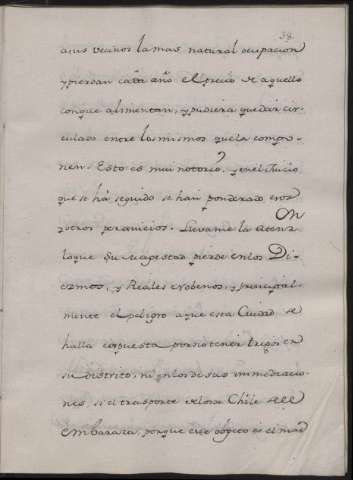 38.
asus vecinos la mas natural ocupacion
y pierdan cada año el precio de aquello
conque alimentan, y pudiera quedar cir-
culado entre los mismos que la compo-
nen. Esto es mui notorio, y en el Juicio
que se há seguido se han ponderado esos
y otros perjuicios. Llevame la atenz.on
lo que Su Magestad pierde en los Di-
ezmos, y Reales Nobenos, y principal-
mente el peligro a que esta Ciudad se
halla expuesta por no tener trigos en
su distrito, ni en los de sus immediacio-
nes, si el trasporte de los de Chile se le
embaraza, porque ese objeto es el mas